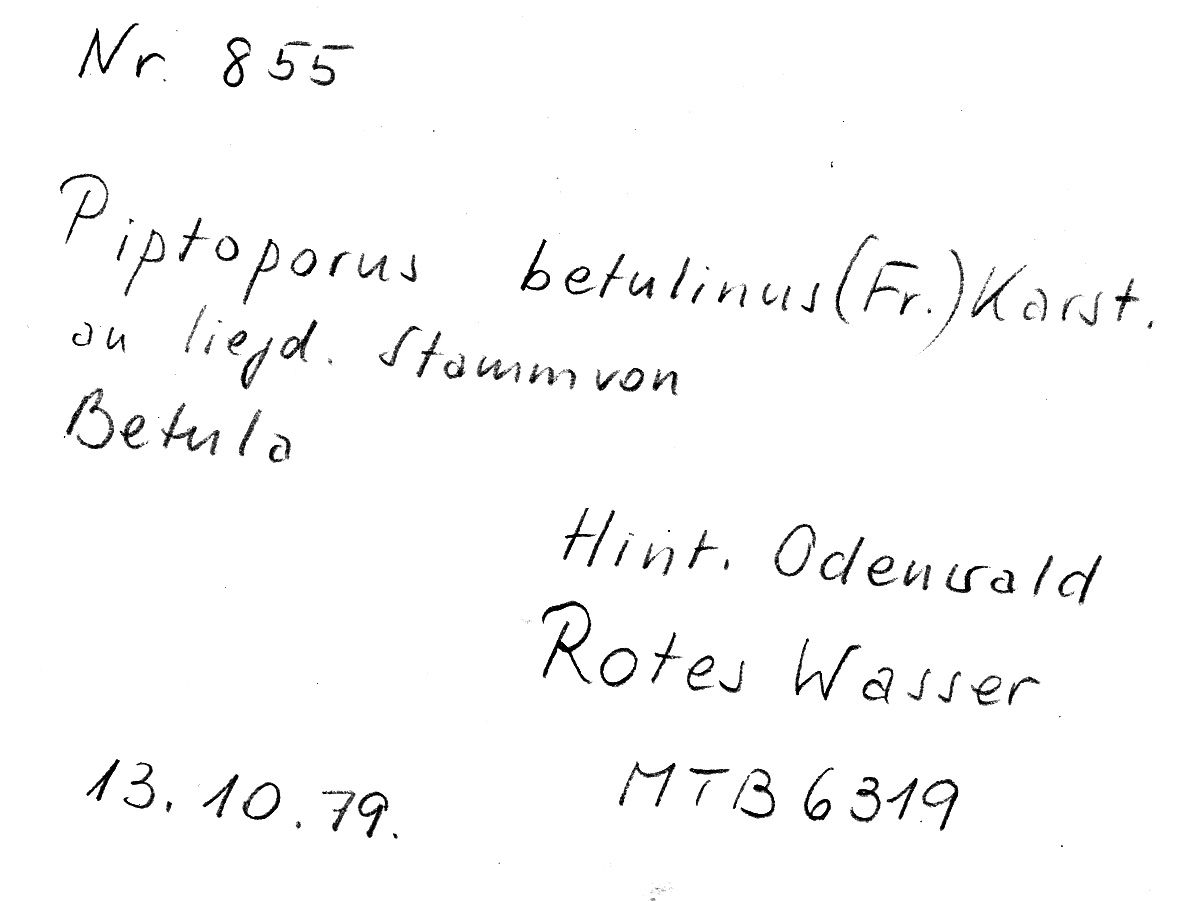 Nr. 855
Piptoporus betulinus (Fr.) Karst.
an liegd. Stamm von
Betula
Hint. Odenwald
Rotes Wasser
13.10.79. MTB 6319